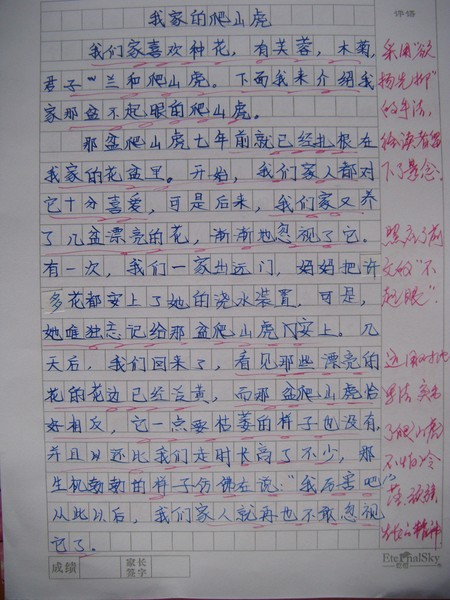 我家的爬山虎
评语
我们家喜欢种花，有芙蓉，木菊，
君子兰和爬山虎。下面我来介绍我
家那盆不起眼的爬山虎。
那盆爬山虎七年前就已经扎根在
我家的花盆里。开始，我们家人都对
它十分喜爱，可是后来，我们家又养
了几盆漂亮的花，渐渐地忽视了它。
有一次，我们一家出远门，妈妈把许
多花都安上了她的浇水装置，可是，
她唯独忘记给那盆爬山虎安上。几
天后，我们回来了，看见那些漂亮的
花的花边已经发黄，而那盆爬山虎恰
好相反，它一点要枯萎的样子也没有，
并且还比我们走时长高了不少，那
生机勃勃的样子仿佛在说："我厉害吧！"
从此以后，我们家人就再也不敢忽视
它了。
采用"欲
扬先抑"
的手法，
给读者留
下了悬念。
照应了前
文的"不
起眼"。
运用对比
了爬山虎
不怕冷
的精神
成绩
家长
签字
EternalSky